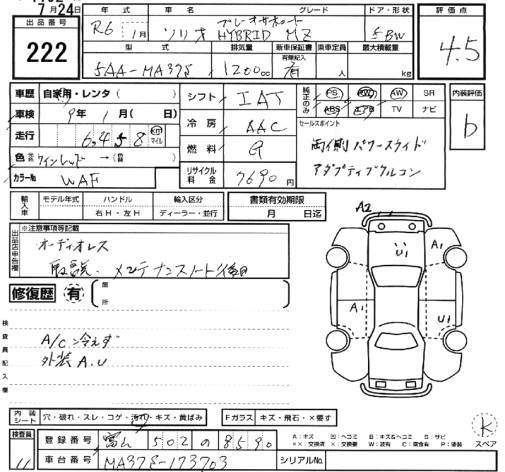 7月24日
出品番号
222
年式 車名 グレード ドア・形状
R6 1月 ソリオHYBRID MZ 5 BW
型式 排気量 新車保証書 乗車定員 最大積載量
有無記入
5AA-MA37S 1200cc 有 人 kg
評価点
4.5
車歴 自家用・レンタ( )
車検 9年 1月( 日)
走行 6,458 km マイル
色 ワインレッド → (
カラーNo WAF
シフト IAT
冷房 AAC
燃料 G
リサイクル料金 7690円
純正のみ PS PW AW SR
ABS エアB TV ナビ
セールスポイント
両側パワースライド
アダプティブクルコン
内装評価
b
輸入車 モデル年式 ハンドル 輸入区分
年 右H・左H ディーラー・並行
書類有効期限
月 日迄
出品店申告欄
※注意事項等記載
オーディオレス
取説、メンテナンスノート後日
修復歴 有 (箇所 )
検査員記入欄
A/C冷えず
外装A.U
A2
U1
A1
A1
U1
内装シート 穴・破れ・スレ・コゲ・汚れ・キズ・黄ばみ
Fガラス キズ・飛石・×要す
検査員 登録番号 富山 502の8590
車台番号 MA37S-173703
シリアルNo.
A:キズ U:ヘコミ B:キズ&ヘコミ S:サビ
××:交換済 ×:交換要 W:波有 C:腐食有 P:塗装
K
スペア